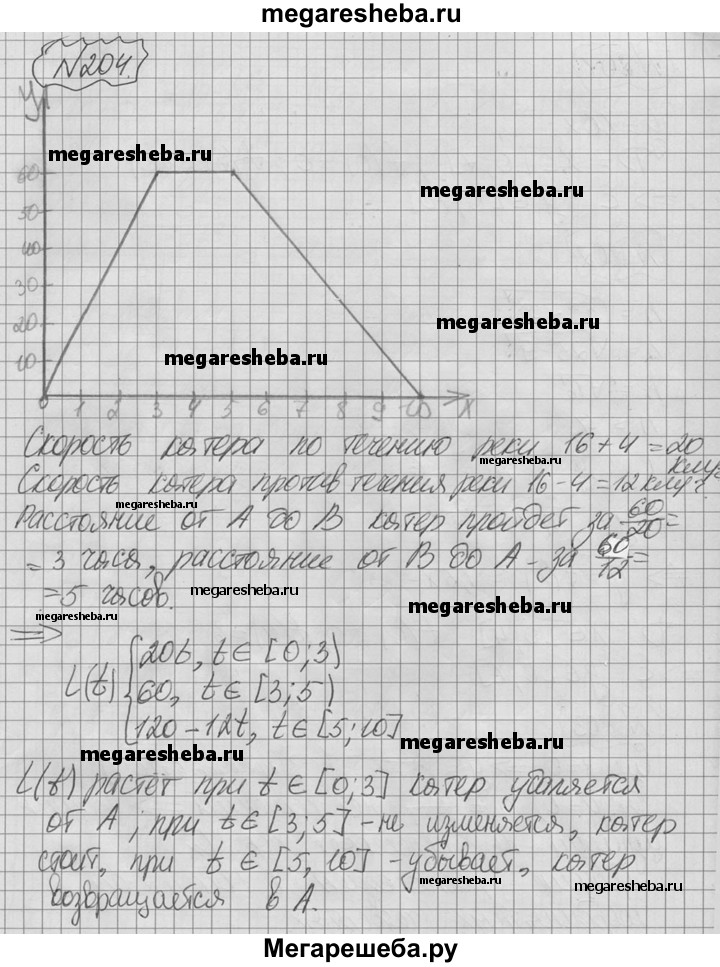 megaresheba.ru
N204.
y
megaresheba.ru
60
megaresheba.ru
50
megaresheba.ru
40
30
megaresheba.ru
20
megaresheba.ru
10
0 1 2 3 4 5 6 7 8 9 10 x
Скорость катера по течению реки 16+4=20
км/ч
megaresheba.ru
Скорость катера против течения реки 16-4=12 км/ч
megaresheba.ru
Расстояние от А до В катер пройдет за 60/20=
= 3 часа, расстояние от В до А - за 60/12=
=5 часов.
megaresheba.ru
megaresheba.ru
megaresheba.ru
=>
L(t) { 20t, t∈[0;3)
60, t∈[3;5)
120-12t, t∈[5;10]
megaresheba.ru
megaresheba.ru
L(t) растет при t∈[0;3] катер удаляется
от А, при t∈[3;5] - не изменяется, катер
стоит, при t∈[5,10] - убывает, катер
megaresheba.ru
megaresheba.ru
возвращается в А.
Мегарешеба.ру